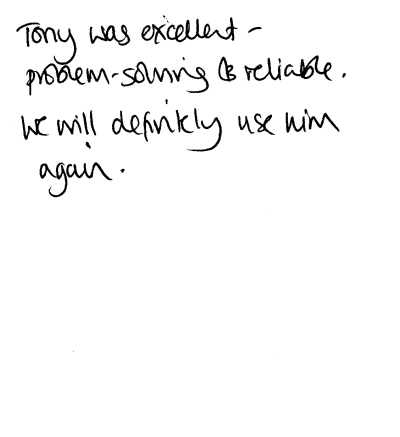 Tony was excellent -
problem-solving & reliable.
We will definitely use him
again.